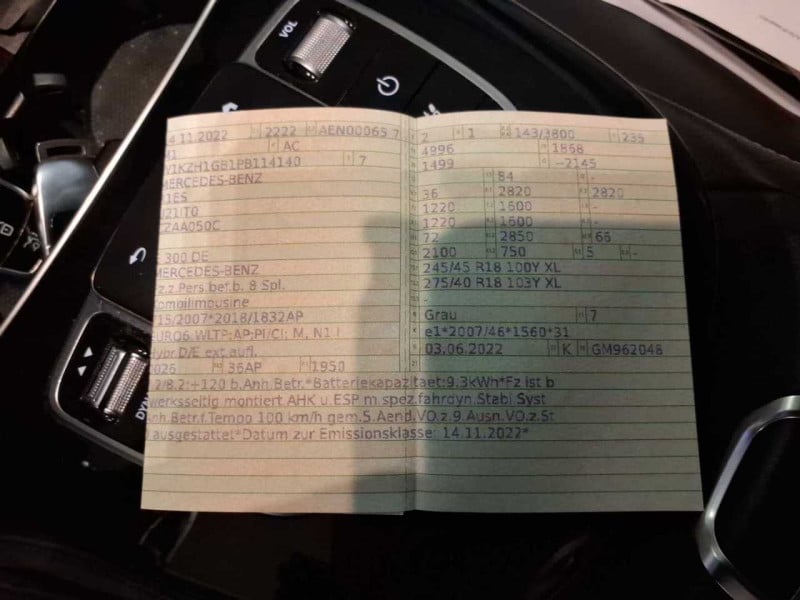 VOL
4 11.2022 2222 AEN00065 7
AC
1KZH1GB1PB114140 7
MERCEDES-BENZ
R1ES
Z21IT0
ZAA050C
E 300 DE
MERCEDES-BENZ
Fz.z.Pers.bef.b. 8 Spl.
Kombilimousine
715/2007*2018/1832AP
EURO6;WLTP;AP;PI/CI; M, N1 I
Hybr.D/E ext.aufl.
0026 36AP 1950
7.2/8.2:+120 b.Anh.Betr.*Batteriekapazitaet:9.3kWh*Fz ist b
werksseitig montiert AHK u.ESP m.spez.fahrdyn.Stabi Syst
Anh.Betr.f.Tempo 100 km/h gem.5.Aend.VO.z.9.Ausn.VO.z.St
ausgestattet*Datum zur Emissionsklasse: 14.11.2022*
2 1 143/3800 235
4996 1868
1499 -2145
84 -
36 2820 2820
1220 1600 -
1220 1600 -
72 2850 66
2100 750 5 -
245/45 R18 100Y XL
275/40 R18 103Y XL
-
Grau 7
e1*2007/46*1560*31
03.06.2022 K GM962048
DYN